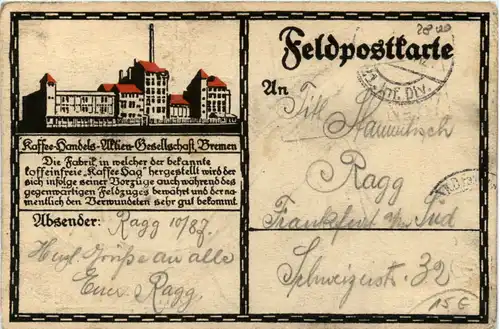 Feldpostkarte
An
Inf. Div.
Kaffee-Handels-Aktien-Gesellschaft, Bremen
Die Fabrik in welcher der bekannte
koffeinfreie „Kaffee Hag" hergestellt wird der
sich infolge seiner Vorzüge auch während des
gegenwärtigen Feldzuges bewährt und der na-
mentlich den Verwundeten sehr gut bekommt.
Absender: Ragg 10/87.
Herzl. Grüße an alle
Euer Ragg
Titl Stammtisch
Ragg
Frankfurt a/M Süd
Schweizerstr. 32
15 €